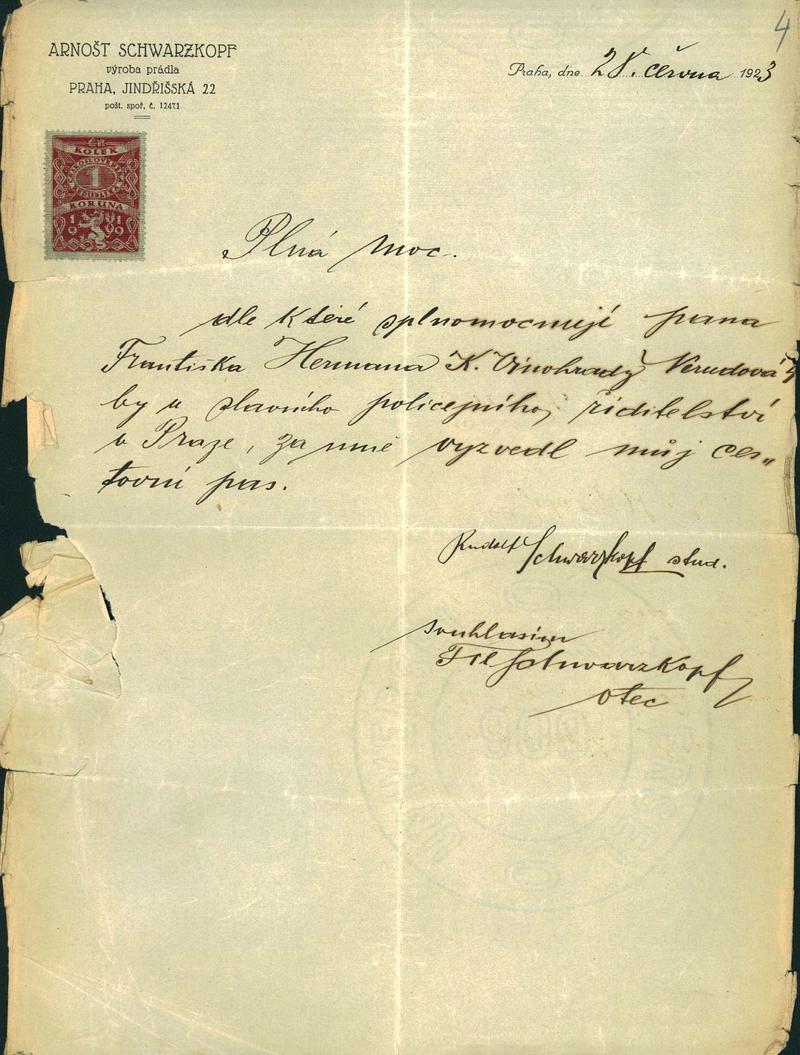 4
ARNOŠT SCHWARZKOPF
výroba prádla
PRAHA, JINDŘIŠSKÁ 22
pošt. spoř. č. 12471
Praha, dne 28. června 1923
KOLEK
ČESKOSLOVENSKÁ
1
REPUBLIKA
KORUNA
1919
Plná moc.
dle které splnomocnuji pana
Františka Hermana K. Vinohrady Nerudova
by u slavního policejního, řiditelství
v Praze, za mne vyzvedl můj ces„
tovní pas.
Rudolf Schwarzkopf stud.
souhlasím
Schwarzkopf
otec